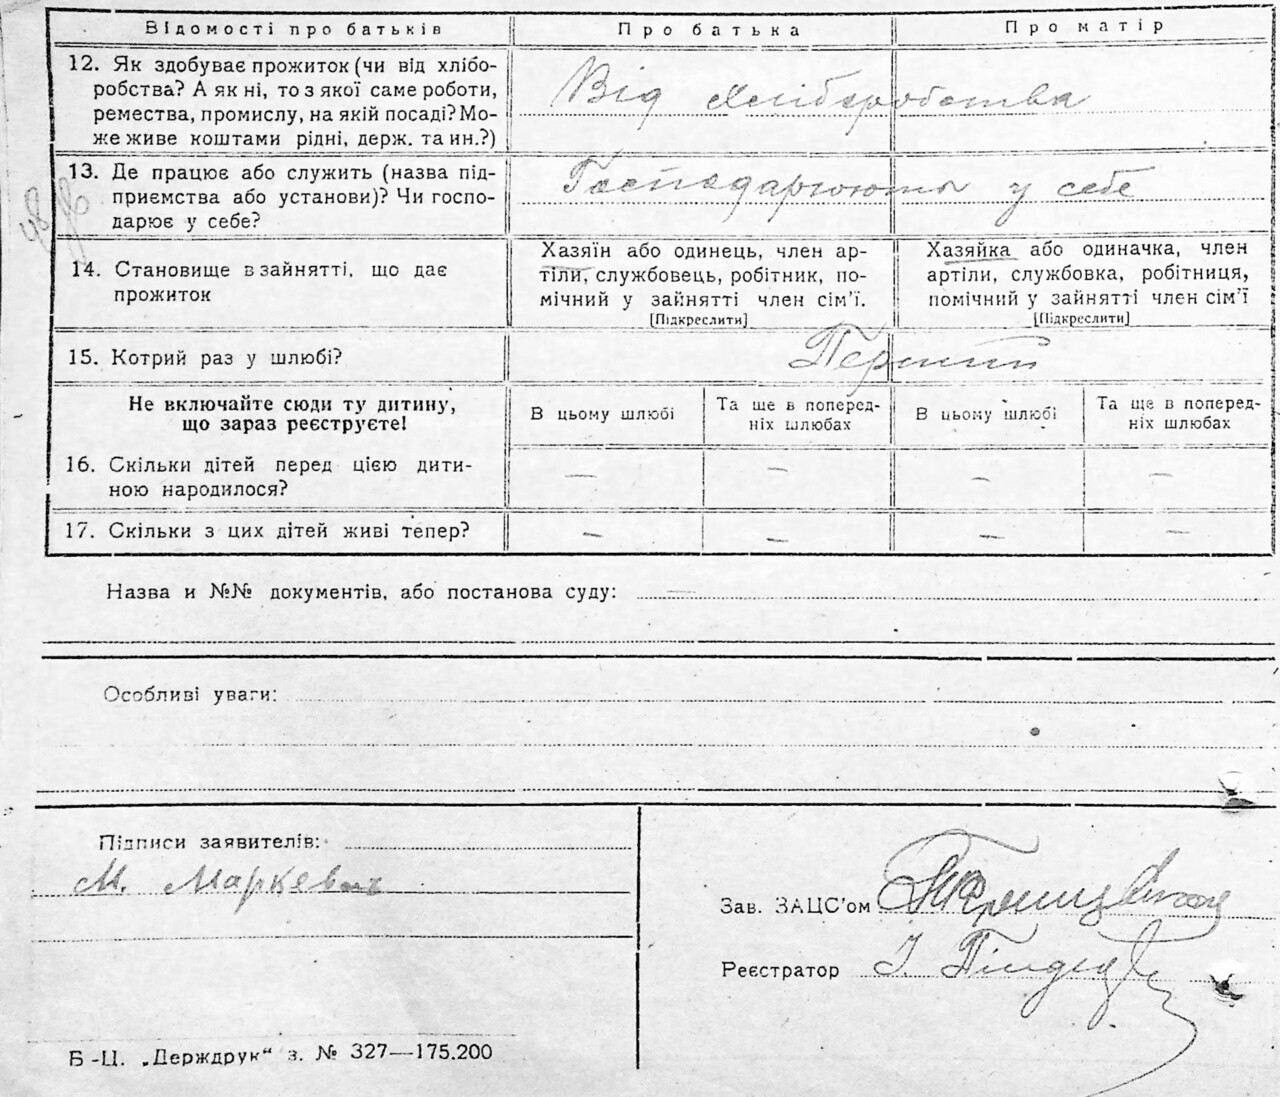 Відомості про батьків Про батька Про матір
12. Як здобуває прожиток (чи від хлібо-
робства? А як ні, то з якої саме роботи,
ремества, промислу, на якій посаді? Мо-
же живе коштами рідні, держ. та ин.?)
Від хліборобства
13. Де працює або служить (назва під-
приємства або установи)? Чи госпо-
дарює у себе?
Господарюють у себе
48
14. Становище в зайнятті, що дає
прожиток
Хазяїн або одинець, член ар-
тіли, службовець, робітник, по-
мічний у зайнятті член сім'ї.
[Підкреслити]
Хазяйка або одиначка, член
артіли, службовка, робітниця,
помічний у зайнятті член сім'ї
[Підкреслити]
15. Котрий раз у шлюбі? Перший
Не включайте сюди ту дитину,
що зараз реєструєте!
В цьому шлюбі
Та ще в поперед-
ніх шлюбах
В цьому шлюбі
Та ще в поперед-
ніх шлюбах
16. Скільки дітей перед цією дити-
ною народилося?
— — — —
17. Скільки з цих дітей живі тепер? — — — —
Назва и №№ документів, або постанова суду: —
Особливі уваги:
Підписи заявителів:
М. Маркевич
Зав. ЗАЦС'ом
Реєстратор І.
Б-Ц. „Держдрук" з. № 327—175.200